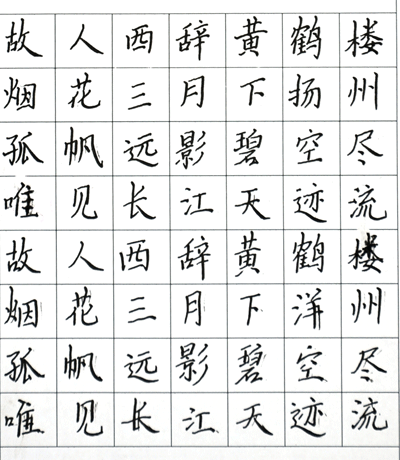 故人西辞黄鹤楼
烟花三月下扬州
孤帆远影碧空尽
唯见长江天迹流
故人西辞黄鹤楼
烟花三月下洋州
孤帆远影碧空尽
唯见长江天迹流